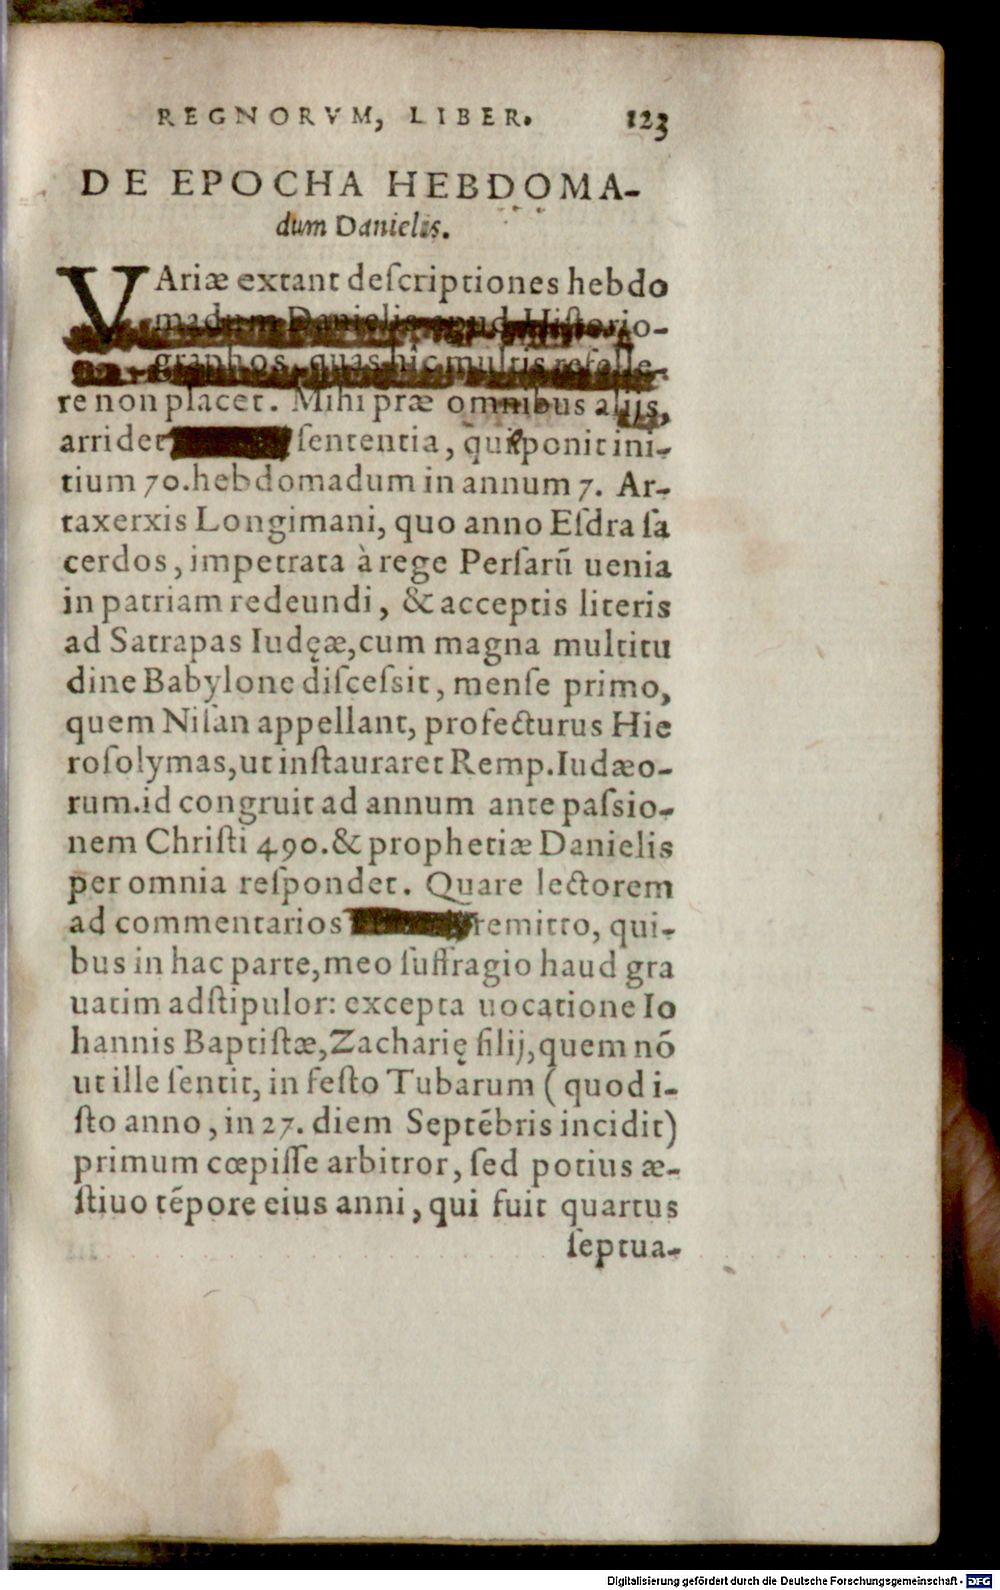 REGNORVM, LIBER. 123
DE EPOCHA HEBDOMA-
dum Danielis.
VAriæ extant deſcriptiones hebdo
madum Danielis apud Hiſtorio-
graphos, quas hîc multis refelle-
re non placet. Mihi præ omnibus alijs,
arridet ſententia, qui ponit ini-
tium 70. hebdomadum in annum 7. Ar-
taxerxis Longimani, quo anno Eſdra ſa
cerdos, impetrata à rege Perſarū uenia
in patriam redeundi, & acceptis literis
ad Satrapas Iudęæ, cum magna multitu
dine Babylone diſceſsit, menſe primo,
quem Niſan appellant, profecturus Hie
roſolymas, ut inſtauraret Remp. Iudæo-
rum. id congruit ad annum ante paſsio-
nem Chriſti 490. & prophetiæ Danielis
per omnia reſpondet. Quare lectorem
ad commentarios remitto, qui-
bus in hac parte, meo ſuffragio haud gra
uatim adſtipulor: excepta uocatione Io
hannis Baptiſtæ, Zacharię filij, quem nō
ut ille ſentit, in feſto Tubarum ( quod i-
ſto anno, in 27. diem Septēbris incidit)
primum cœpiſſe arbitror, ſed potius æ-
ſtiuo tēpore eius anni, qui fuit quartus
ſeptua-
Digitalisierung gefördert durch die Deutsche Forschungsgemeinschaft - DFG